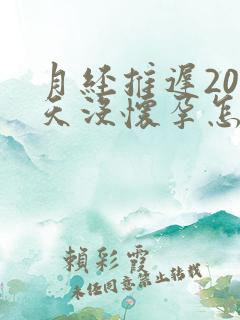 月经推遲20
天没懷孕怎
賴彩霞
未经同意禁止转载